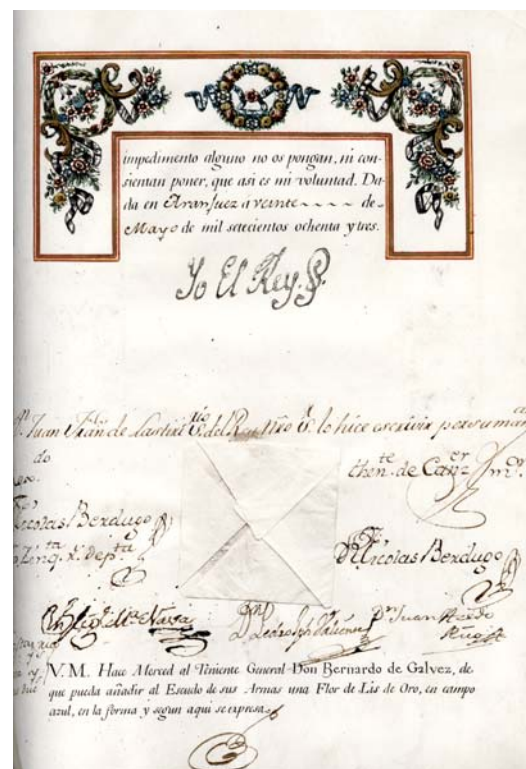 impedimento alguno no os pongan, ni con-
sientan poner, que asi es mi voluntad. Da-
da en Aranjuez á veinte ~ ~ ~ ~ de
Mayo de mil setecientos ochenta y tres.
Yo El Rey.
Juan de lastiri del Rey nro lo hice escrivir por su man
do
then.te de Canz.er m.or
Nicolas Berdugo
D.n Nicolas Berdugo
D.n Juan
V. M. Hace Merced al Teniente General Don Bernardo de Galvez, de
que pueda añadir al Escudo de sus Armas una Flor de Lis de Oro, en campo
azul, en la forma y segun aqui se expresa.